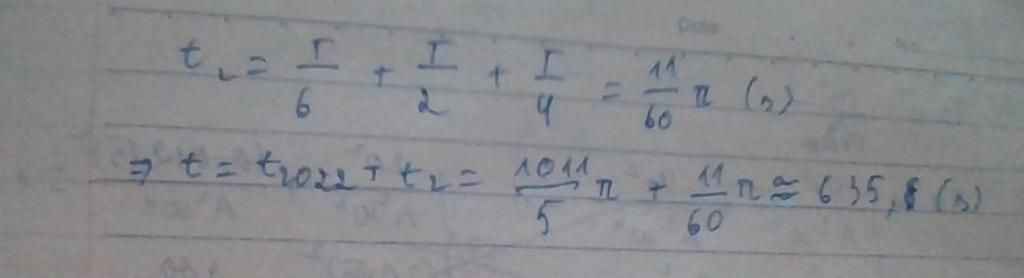 t₂ = T/6 + T/2 + T/4 = 11/60 π (s)
⇒ t = t₂₀₂₂ + t₂ = 1011/5 π + 11/60 π ≈ 635, (s)